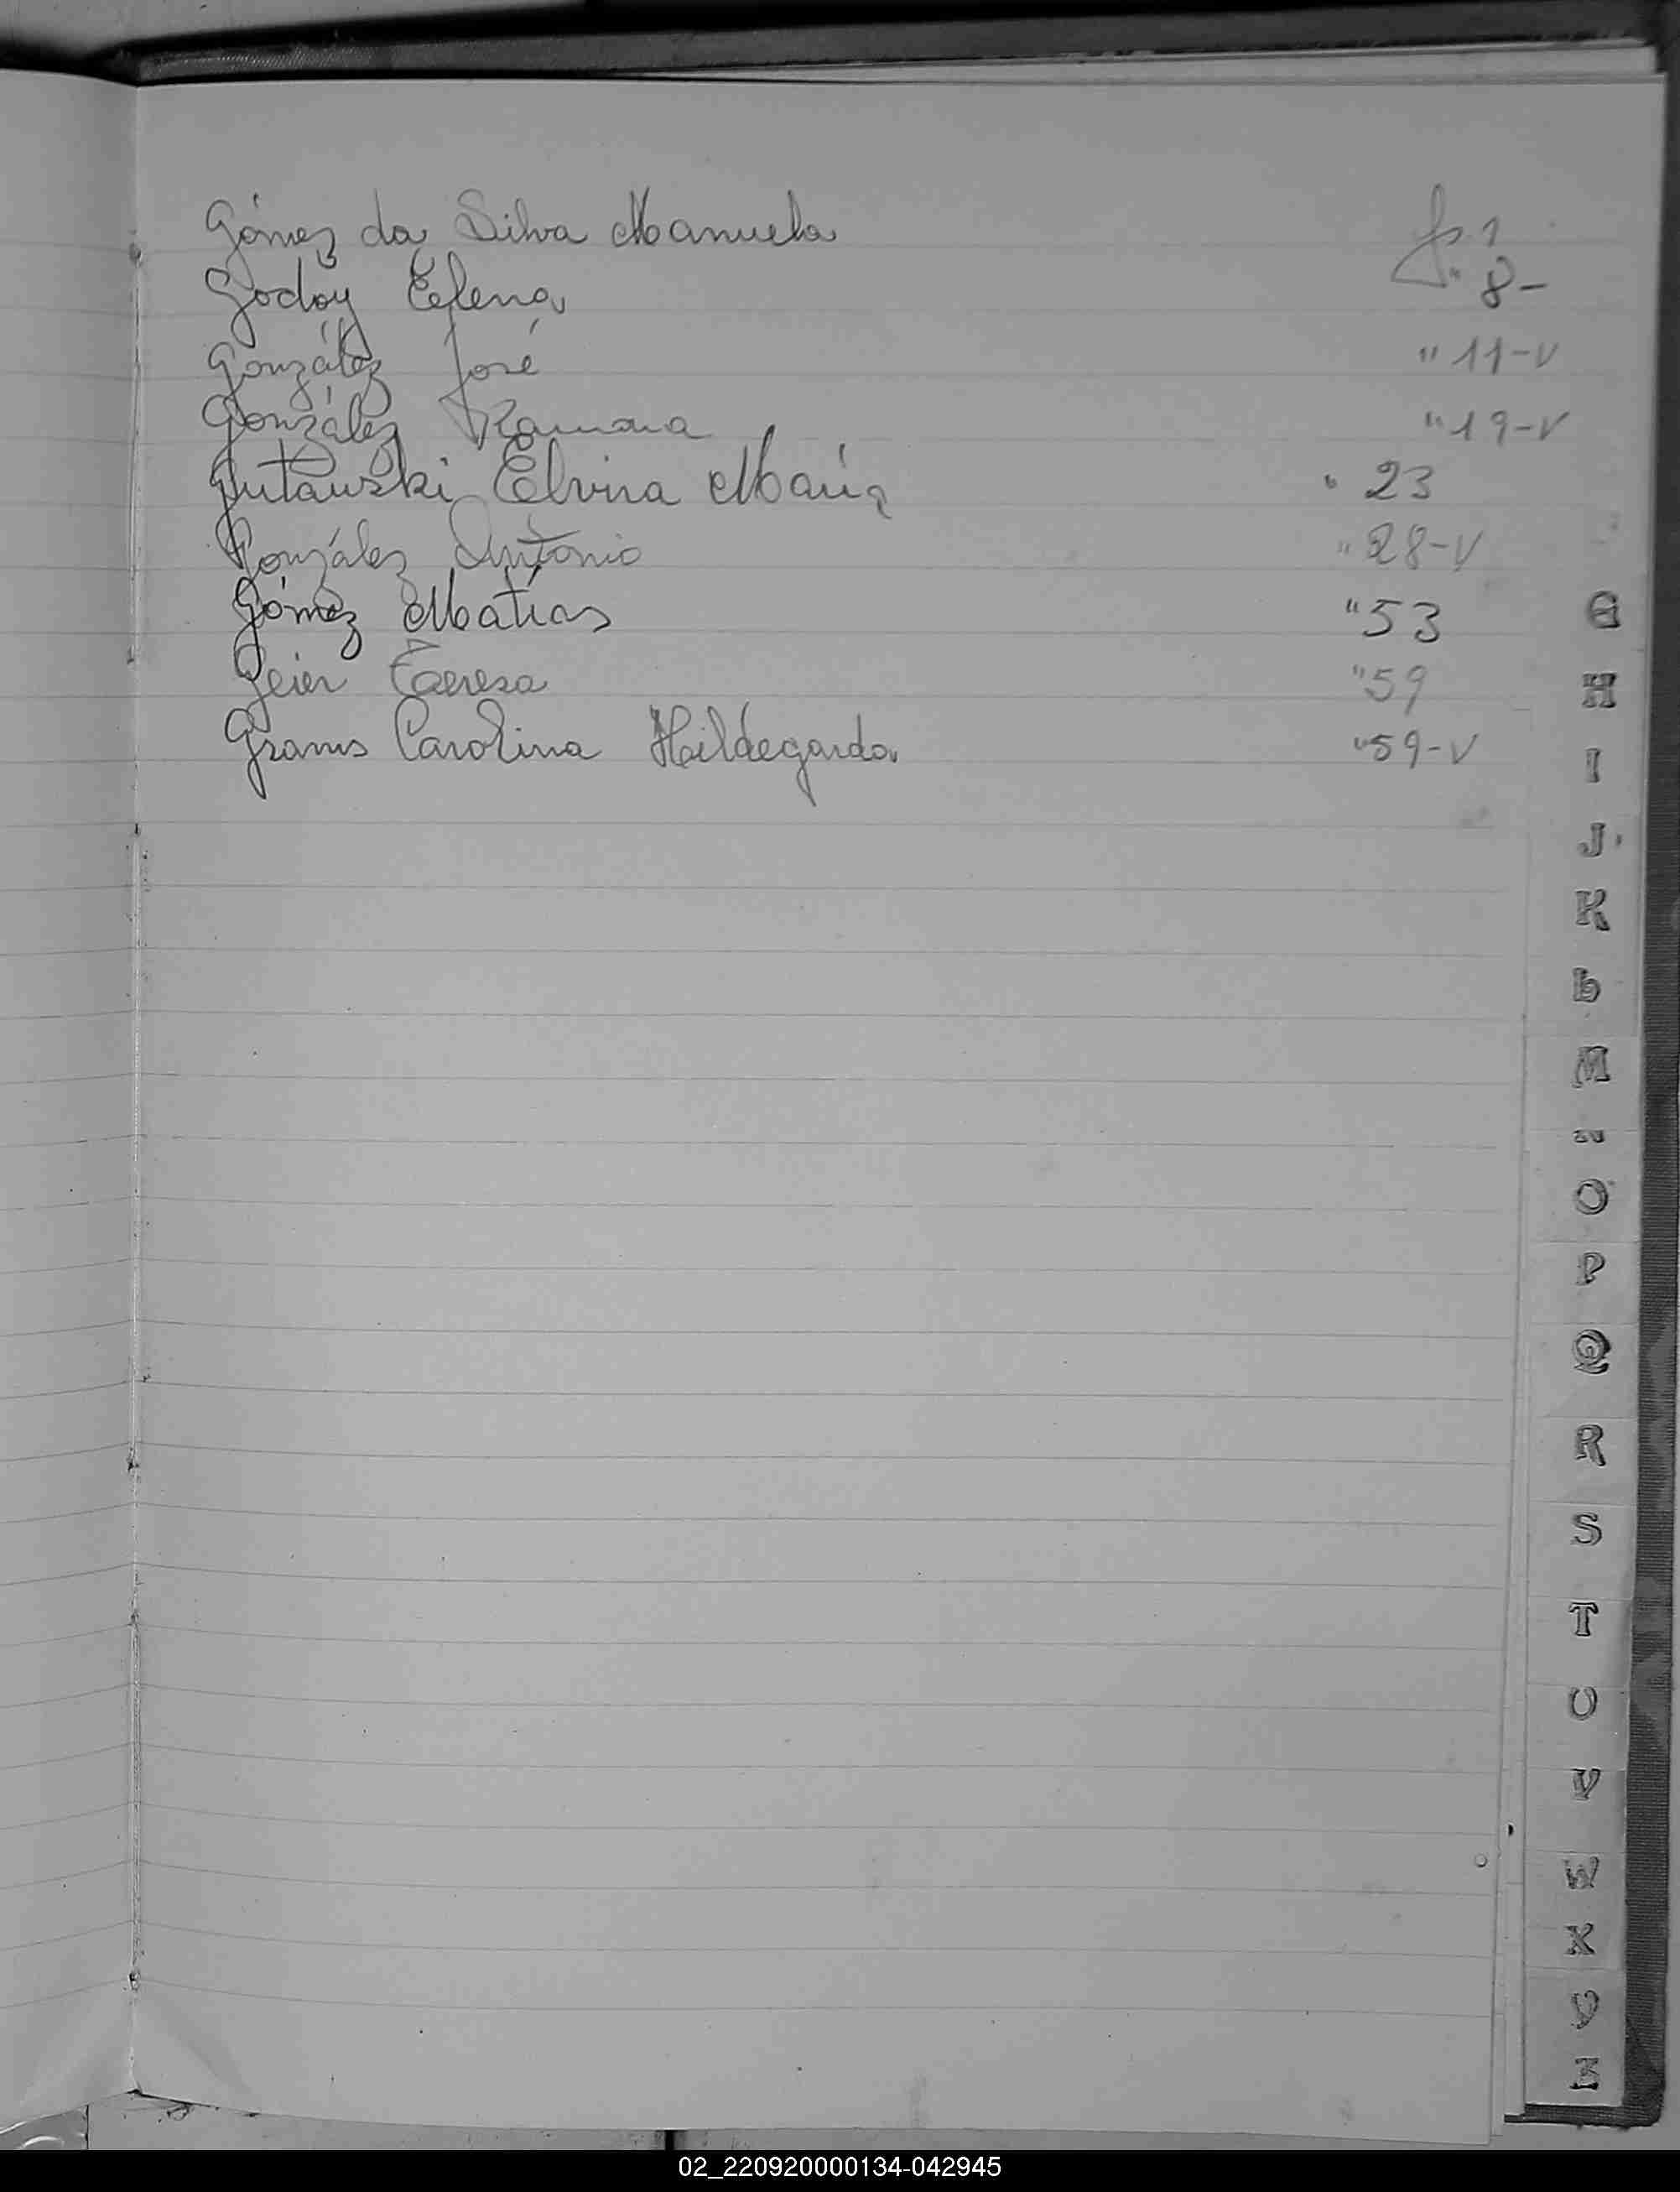 Gómez da Silva Manuela fs. 1
Godoy Elena " 8-
González José " 11-V
González Ramona " 19-V
Gutauski Elvira María " 23
González Antonio " 28-V
Gómez Matías " 53
Geier Teresa " 59
Grams Carolina Hildegarda " 59-V
G
H
I
J
K
L
M
O
P
Q
R
S
T
U
V
W
X
Y
Z
02_220920000134-042945